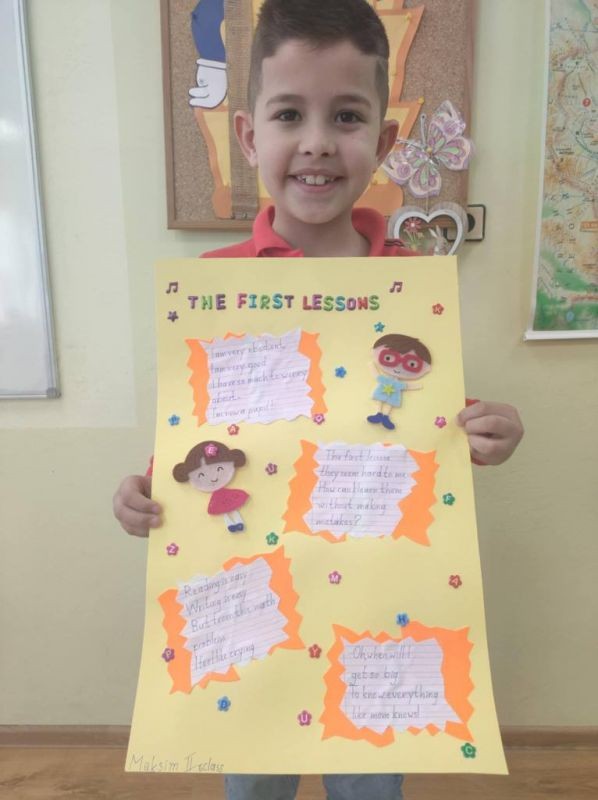 THE FIRST LESSONS
I am very obedient,
I am very good
I have so much to worry
about.
I'm now a pupil!
The first lessons
they seem hard to me.
How can I learn them
without making
mistakes?
Reading is easy
Writing is easy
But from this math
problem
I feel like crying
Oh, when will I
get so big
To know everything
like mom knows!
Maksim II c class